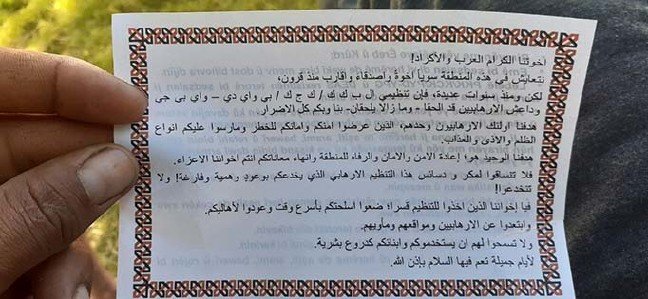 اخوتنا الكرام العرب والاكراد!
نتعايش في هذه المنطقة سويا اخوة وأصدقاء واقارب منذ قرون،
لكن ومنذ سنوات عديدة، فإن تنظيمي ال ب ك ك / ك ج ك / بي واي دي – واي بي جي
وداعش الارهابيين قد الحقا - وما زالا يلحقان- بنا وبكم كل الاضرار.
هدفنا اولئك الارهابيون وحدهم، الذين عرضوا امنكم وامانكم للخطر ومارسوا عليكم انواع
الظلم والأذى والعذاب.
هدفنا الوحيد هو: إعادة الامن والامان والرفاه للمنطقة وانهاء معاناتكم انتم اخواننا الاعزاء.
فلا تنساقوا لمكر و دسائس هذا التنظيم الارهابي الذي يخدعكم بوعود وهمية وفارغة! ولا
تنخدعوا!
فيا إخواننا الذين اخذوا للتنظيم قسرا؛ ضعوا اسلحتكم بأسرع وقت وعودوا لأهاليكم.
وابتعدوا عن الارهابيين ومواقعهم ومأويهم.
ولا تسمحوا لهم بأن يستخدموكم وابنائكم كدروع بشرية.
لأيام جميلة نعم فيها السلام بإذن الله.